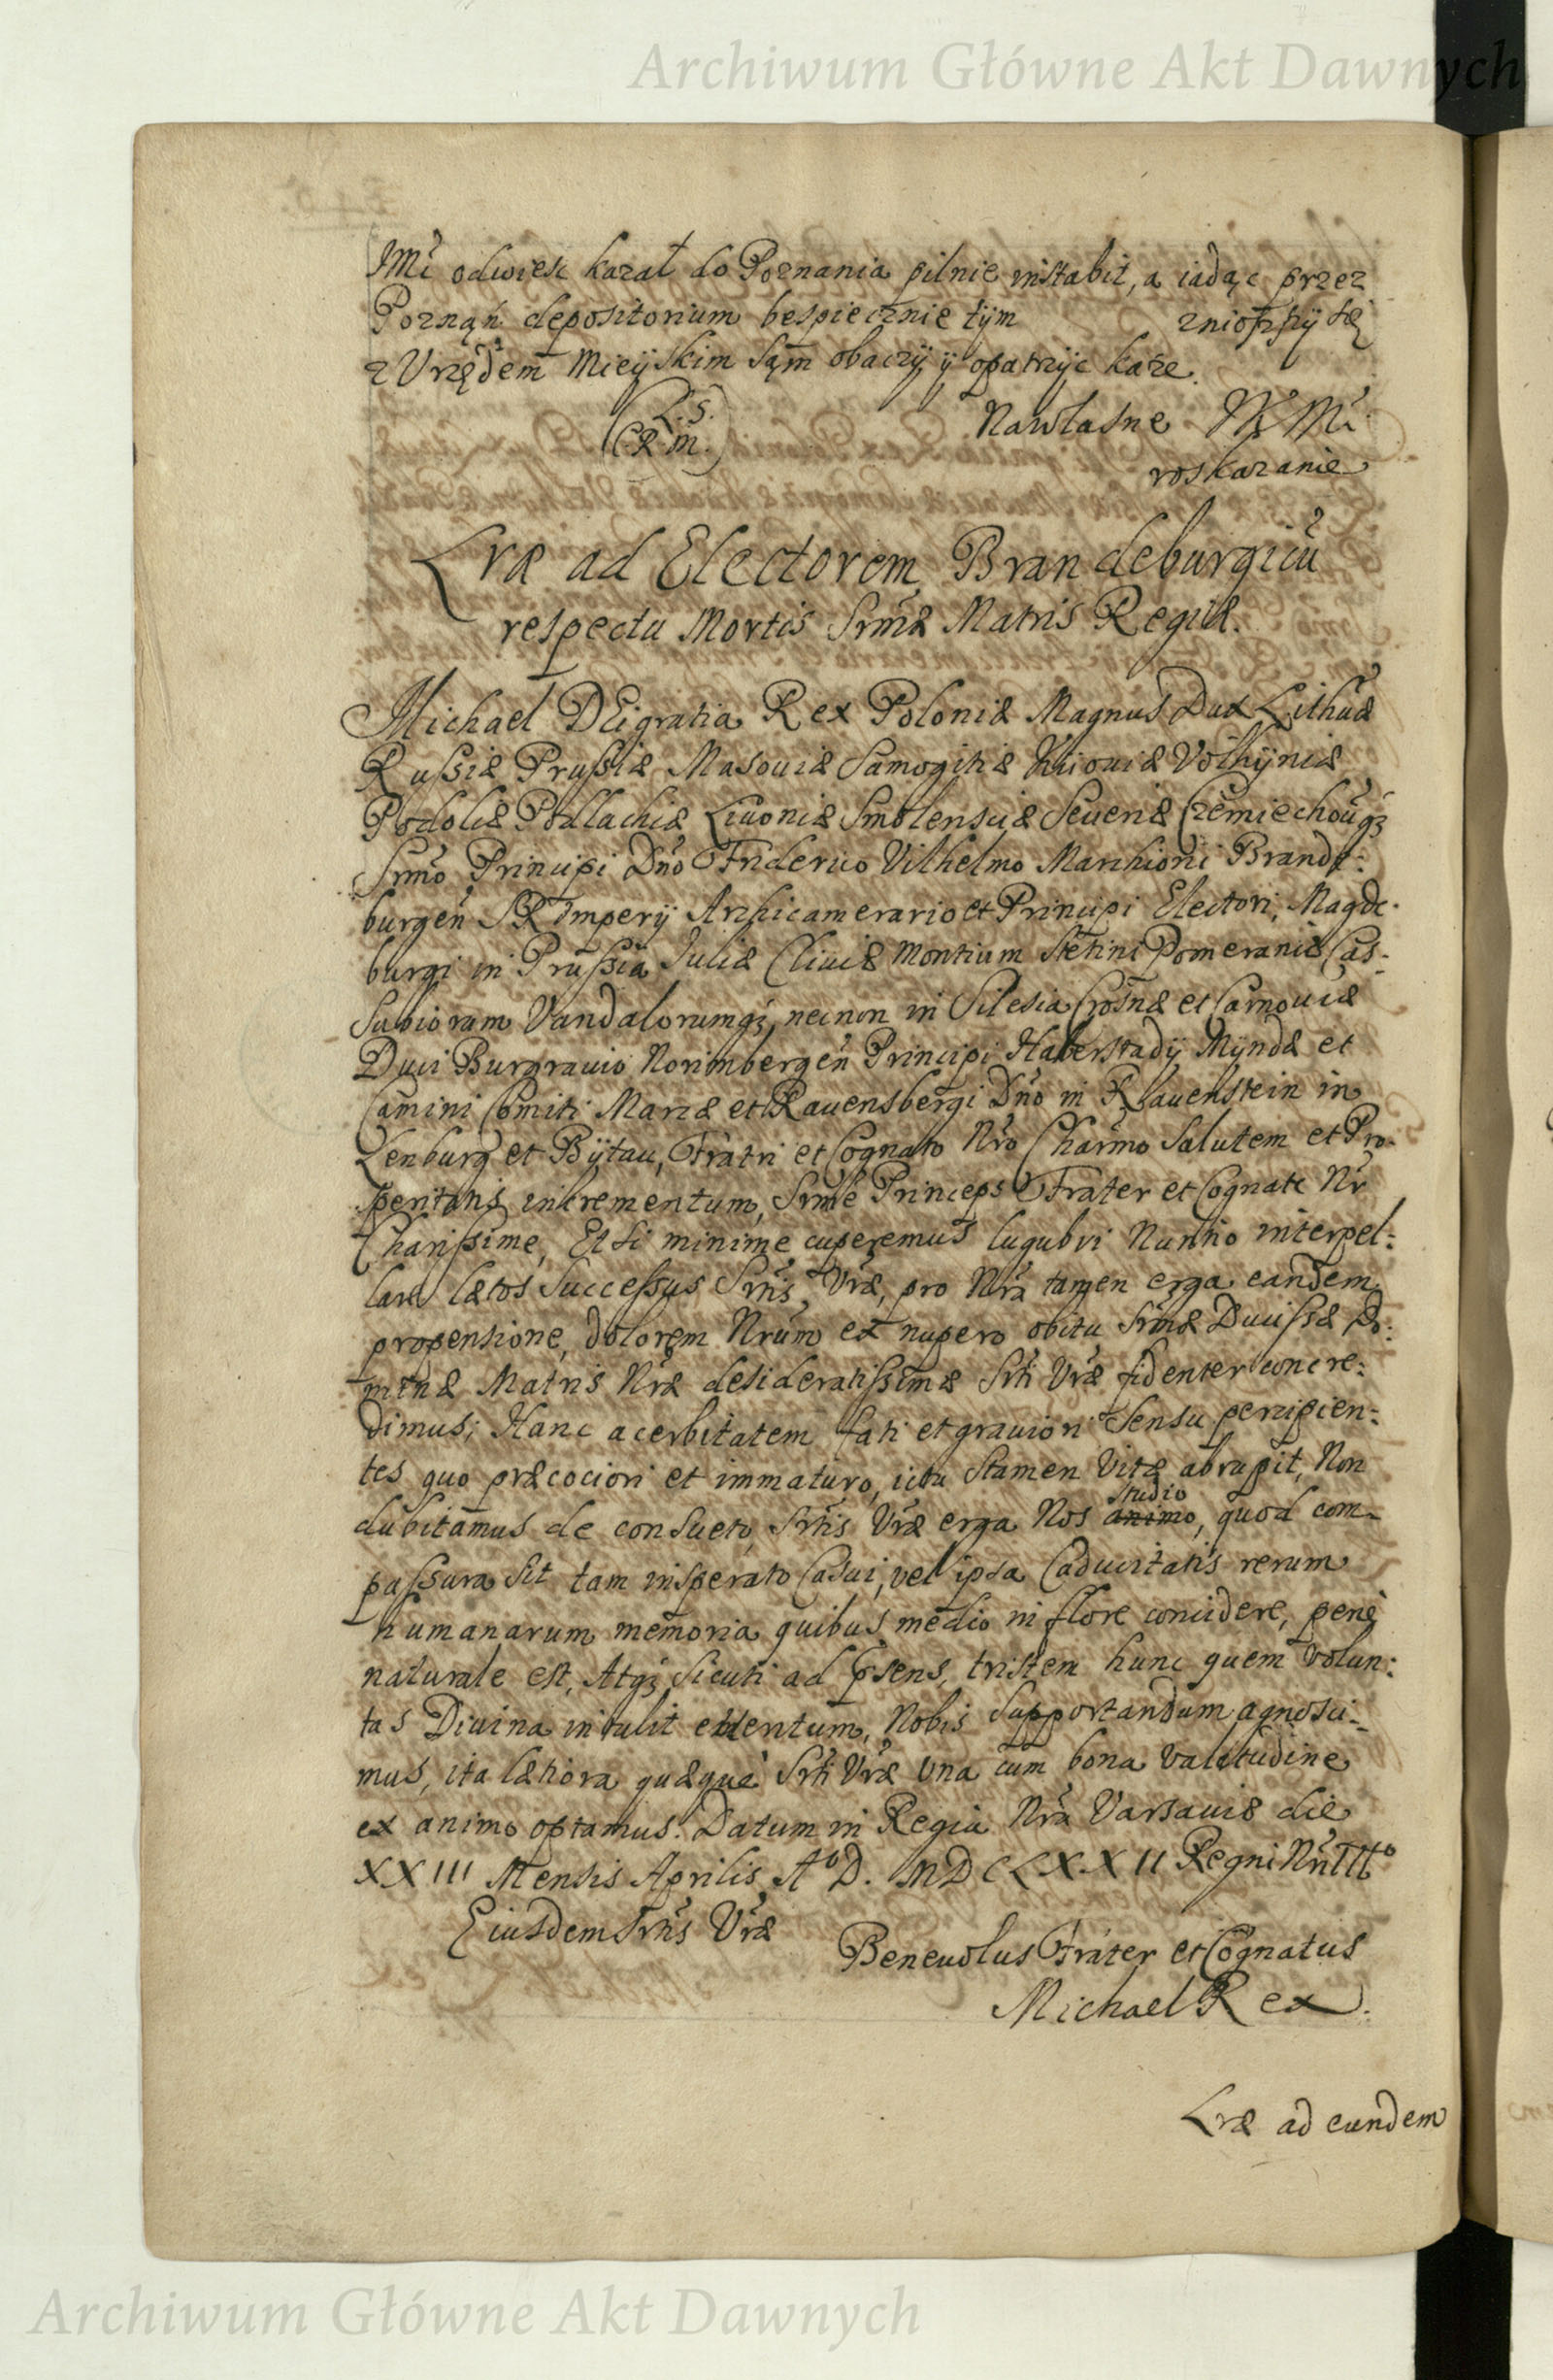 Archiwum Główne Akt Dawnych
JMć odwiesc kazał do Poznania pilnie instabit, a iadąc przez
Poznąń depositorium bespiecznie tym zniozszÿ się
z Vrzędem Mieÿskim sąm obaczÿ ÿ opatrzÿc każe.
(L.S.
C R M.)
Nawłasne JKMći
roskazanie
Lræ ad Electorem Brandeburgicũ
respectu Mortis Srmæ Matris Regiæ.
Michael DEi gratia Rex Poloniæ Magnus Dux Lithuæ
Russiæ Prussiæ Masouiæ Samogitiæ Kiiouiæ Volhÿniæ
Podoliæ Podlachiæ Liuoniæ Smolensciæ Seueriæ Czerniechouq3
Srmo Principi Dño Friderico Vilhelmo Marchioni Brande:
burgeñ S R Imperÿ Archicamerario et Principi Electori, Magde-
burgi in Prussia Juliæ Cliuiæ Montium Stetini Pomeraniæ Cas-
subiorum Vandalorumq3, necnon in Silesia Crosnæ et Carnouiæ
Duci Burgrauio Norimbergeñ Principi Halberstadÿ Mÿndæ et
Camini Comiti Marcæ et Rauensbergi Dño in Rauenstein in
Lenburg et Bÿtau, Fratri et Cognato Nro Charmo Salutem et Pro-
speritatis incrementum, Srme Princeps Frater et Cognate Nr
Charissime, Etsi minime cuperemus lugubri Nuntio interpel:
lare lætos Successus Srtis Vræ, pro Nra tamen erga eandem
propensione, dolorem Nrum ex nupero obitu Srmæ Ducissæ Do:
minæ Matris Nræ desideratissimæ Srti Vræ fidenter concre:
dimus; Hanc acerbitatem fati et grauiori sensu percipien:
tes quo præcociori et immaturo, ictu stamen Vitæ abrupit, Non
dubitamus de consueto Srtis Vræ erga Nos animo, quod com-
studio
passura sit tam insperato Casui, vel ipsa Caducitatis rerum
humanarum memoria quibus medio in flore concidere, penè
naturale est, Atq3 sicuti ad p̃sens, tristem hunc quem volun:
tas Diuina intulit euentum, Nobis supportandum agnosci-
mus, ita lætiora quæque Srti Vræ Una cum bona valetudine
ex animo optamus. Datum in Regia Nra Varsauiæ die
XXIII Mensis Aprilis Aº D. MDCLXXII Regni Nri IIIº
Eiusdem Srtis Vræ
Beneuolus Frater et Cognatus
Michael Rex.
Lræ ad eundem
Archiwum Główne Akt Dawnych